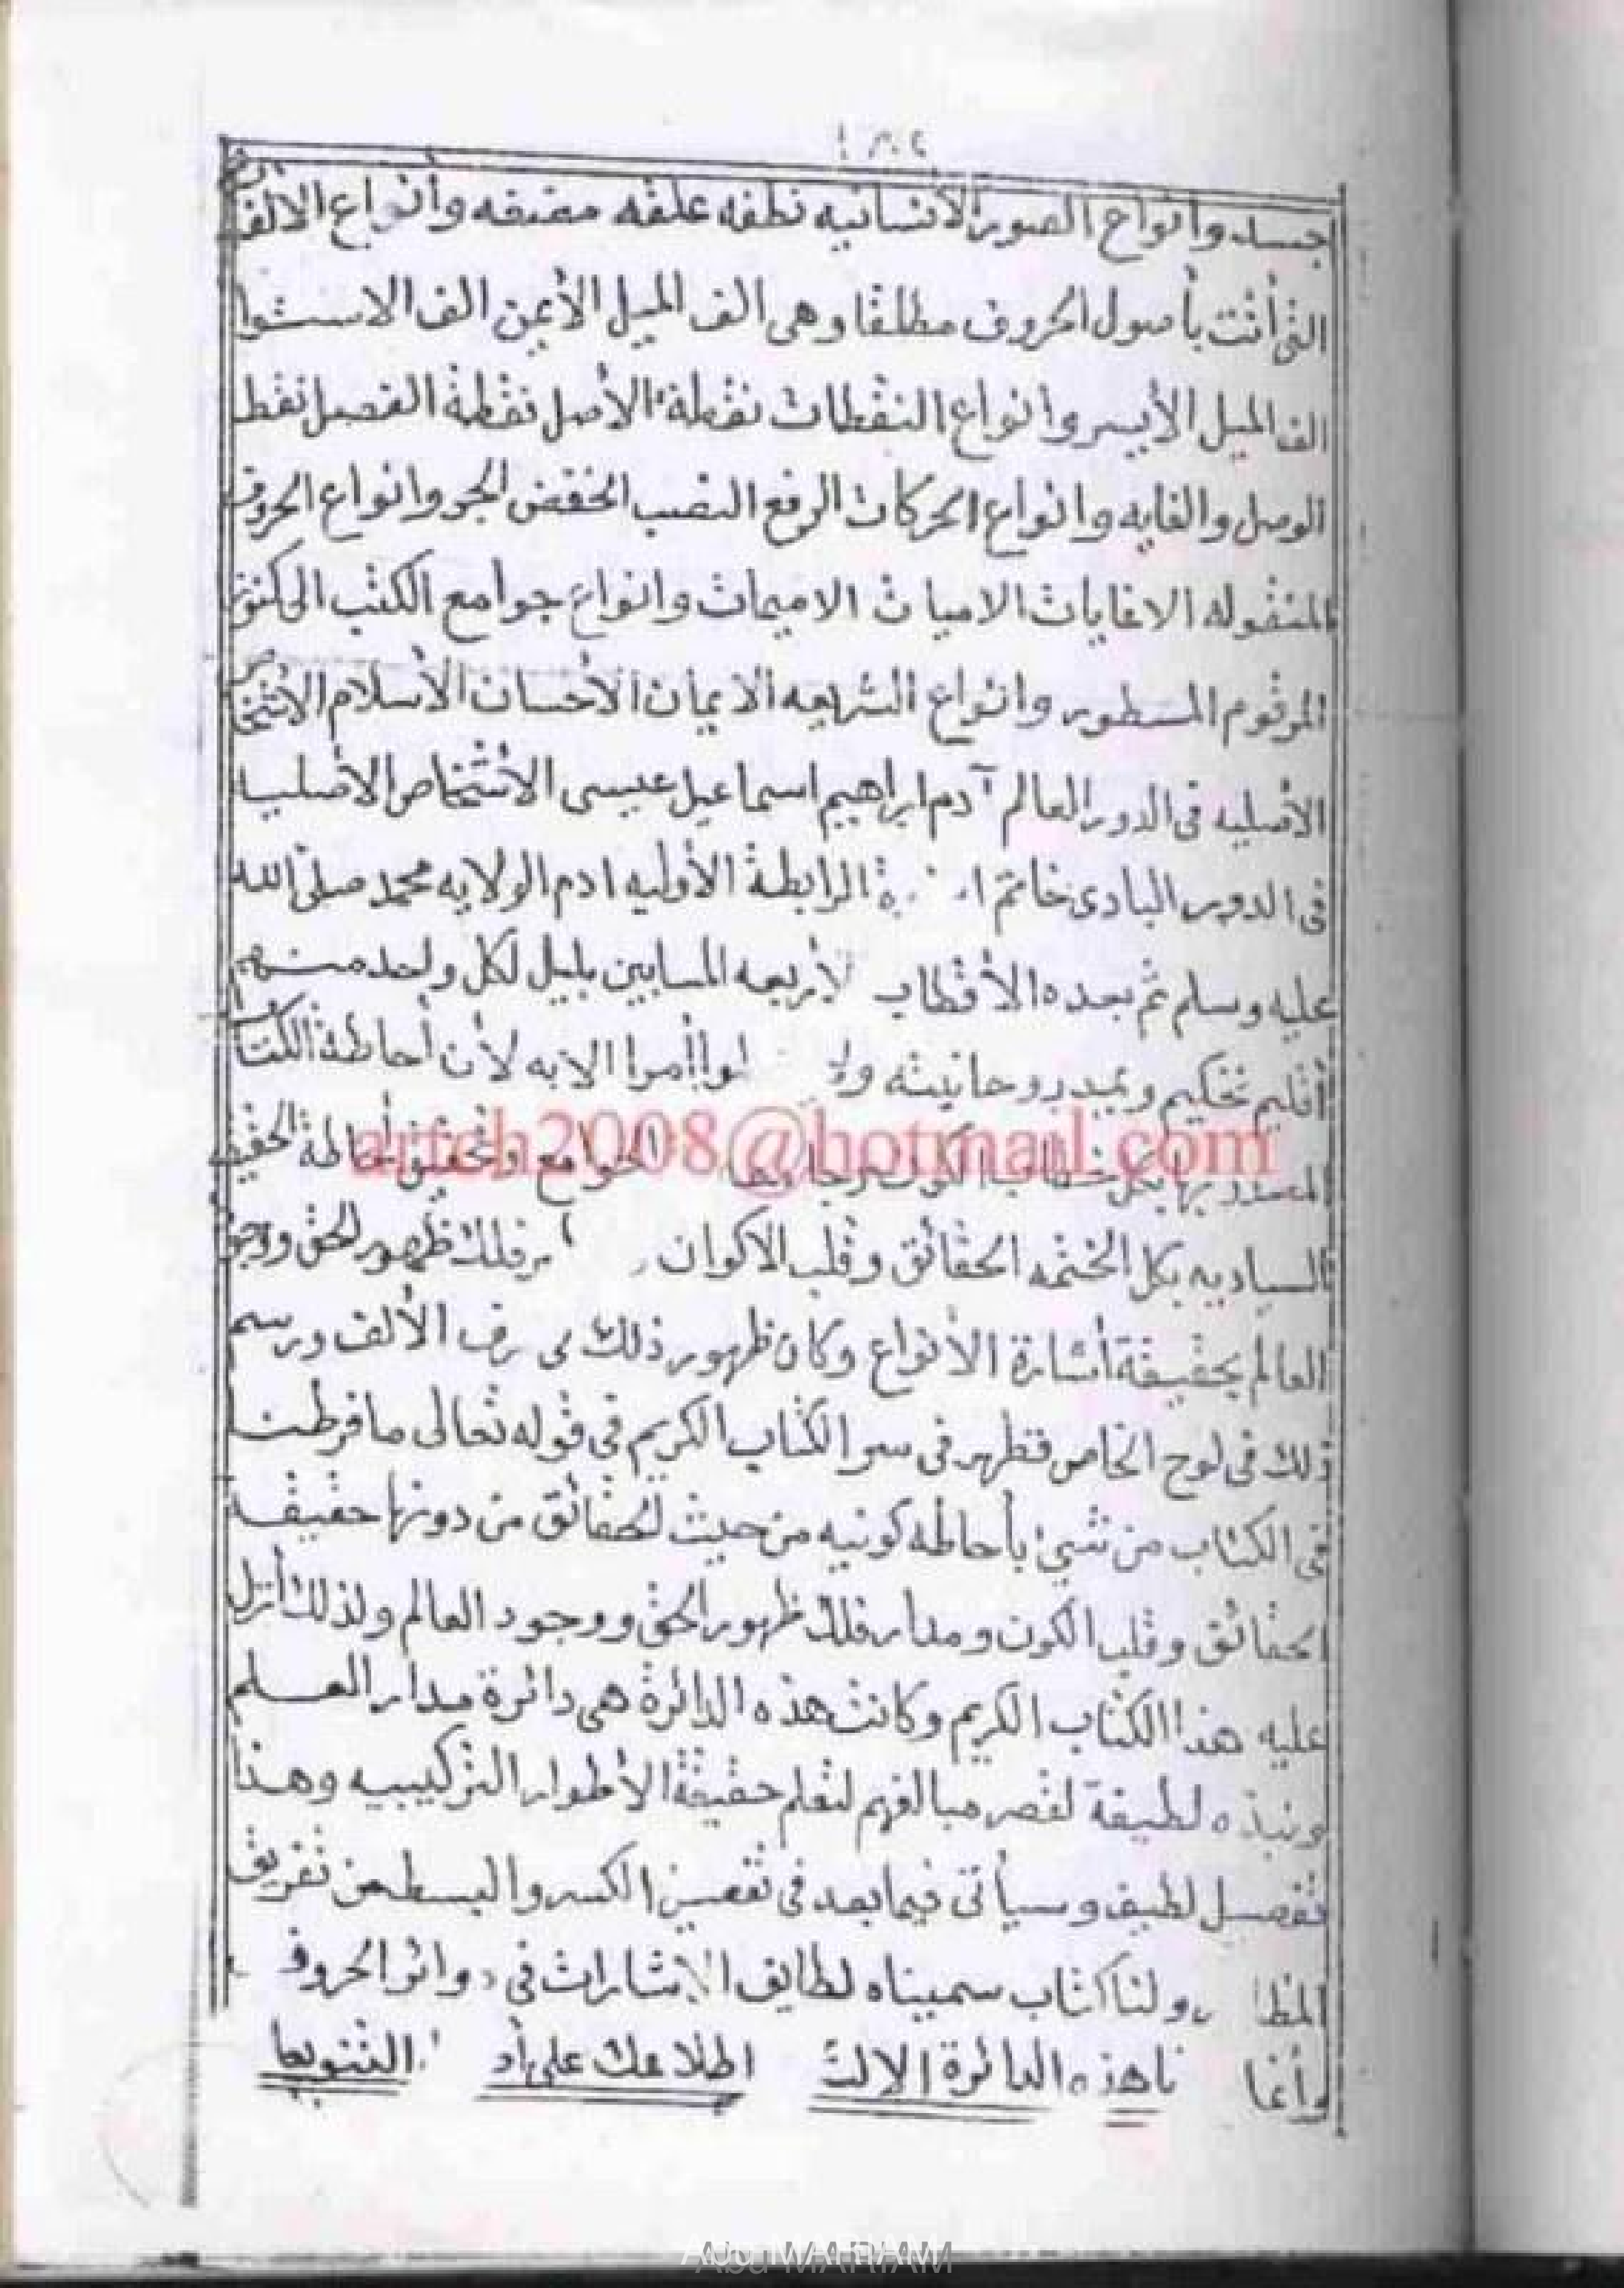 جسد وانواع الصور الأنسانيه نطفه علقه مضغه وأنواع الالف
التى أنت بأصول الحروف مطلقا وهى الف الميل الأيمن الف الاستوا
الف الميل الأيسر وانواع النقطات نقطة الأصل نقطة الفصل نقط
الوصل والغايه وانواع الحركات الرفع النصب الخفض الجر وانواع الحروف
المنقوله الاغايات الاميات الاميمات وانواع جوامع الكتب المكنون
المرقوم المسطور وانواع الشريعه الايمان الأحسان الأسلام
الأصليه فى الدور العالم آدم ابراهيم اسماعيل عيسى الأشخاص الأصليه
فى الدور البادى خاتم الرابطة الأوليه ادم الولايه محمد صلى الله
عليه وسلم ثم بعده الأقطاب لأربعه المسابين بليل لكل واحد منهم
أقليم تحكيم ويمد بروحانيته ولا أمرا الا به لأن أحاطة الكتا
artch2008@hotmail.com
بكل الجوامع وتحقيق أحاطة الحقيقه
الساديه بكل الختمه الحقائق وقلب الأكوان فلك ظهور الحق ووجود
العالم بحقيقة أشارة الأنواع وكان ظهور ذلك الألف ورسم
ذلك فى لوح الخاص فتظهر فى سر الكتاب الكريم فى قوله تعالى ما فرطنا
فى الكتاب من شيئ بأحاطه كونيه من حيث لحقائق من دونها حقيقة
الحقائق وقلب الكون ومدار فلك ظهور الحق ووجود العالم ولذلك أنزل
عليه هذا الكتاب الكريم وكانت هذه الدائرة هى دائرة مدار العلم
ونبذه لطيفة لقصر مبا الفهم لتعلم حقيقة الأطوار التركيبيه وهذا
تفصل لطيف وسيأتى فيما بعد فى الكسر والبسط من
ولنا كتاب سميناه لطايف الأشارات فى دوائر الحروف
وأنما هذه الدائرة اطلاعك على
Abu MARIAM